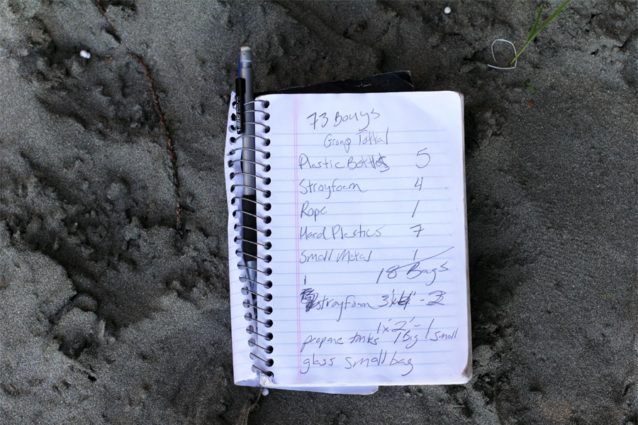 73 Bouys
Group Tottal
Plastic Bottles 5
Stroyfoam 4
Rope 1
Hard Plastics 7
Small Metal 1
18 Bags
stroyfoam 3'x4' - 2
1'x2' - 1
propane tanks 1 Big 1 small
glass small bag